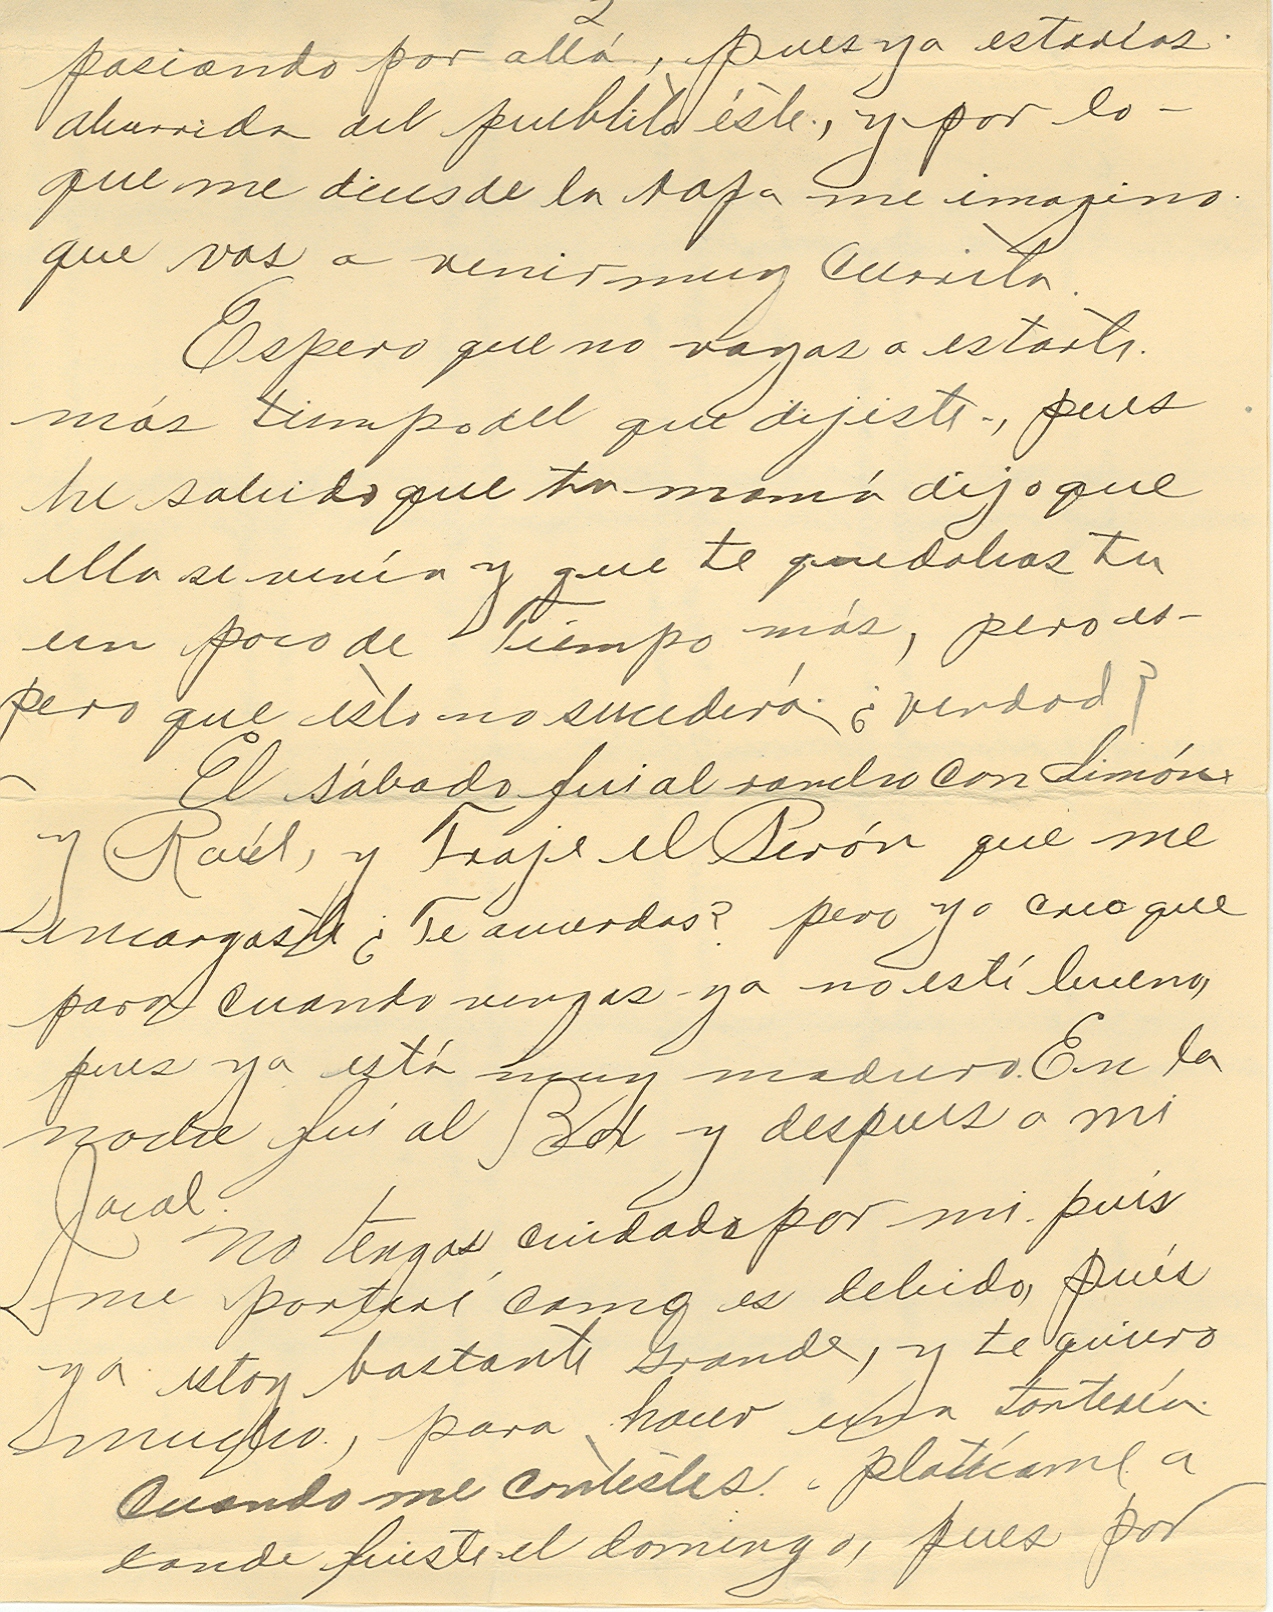 2
paseando por allá, pues ya estarías
aburrida del pueblito éste, y por lo-
que me dices de la ropa me imagino
que vas a venir muy currita.
Espero que no vayas a estarte
más tiempo del que dijiste, pues
he sabido que tu mamá dijo que
ella se venía y que te quedabas tu
un poco de Tiempo más, pero es-
pero que ésto no sucederá. ¿verdad?
El sábado fui al rancho con Simón
y Raúl, y Traje el Perón que me
encargaste ¿Te acuerdas? pero yo creo que
para cuando vengas ya no esté bueno,
pues ya está muy maduro. En la
noche fuí al Bar y después a mi
Jacal.
No tengas cuidado por mi pués
me portaré como es debido, pués
ya estoy bastante grande, y te quiero
mucho, para hacer una tontería.
Cuando me contestes. platícame a
donde fuiste el domingo, pues por